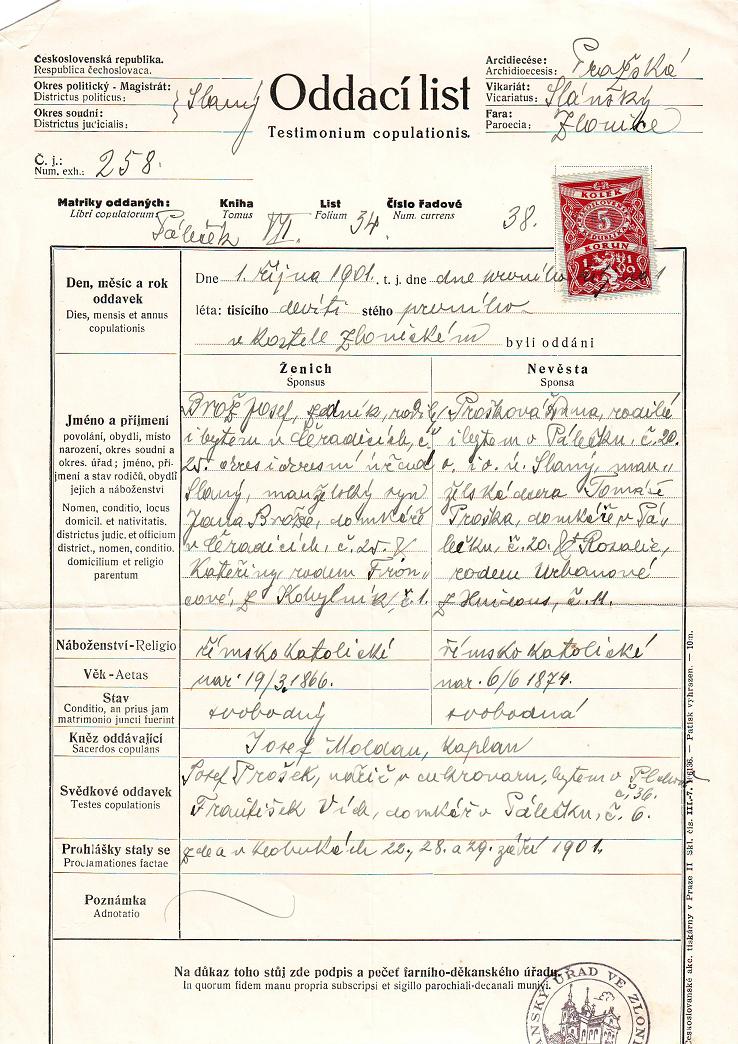 Československá republika.
Respublica čechoslovaca.
Okres politický - Magistrát:
Districtus politicus:
Okres soudní:
Districtus judicialis:
Slaný
Oddací list
Testimonium copulationis.
Arcidiecése: Pražská
Archidioecesis:
Vikariát: Slánský
Vicariatus:
Fara: Zlonice
Paroecia:
Č. j.: 258.
Num. exh.:
Matriky oddaných: Kniha List Číslo řadové
Libri copulatorum: Tomus Folium Num. currens
Páleček VII 34. 38.
KOLEK
5
KORUN
1919
Den, měsíc a rok
oddavek
Dies, mensis et annus
copulationis
Dne 1. října 1901. t. j. dne dne prvního
léta: tisícího devíti stého prvního
v kostele Zlonickém byli oddáni
Ženich
Sponsus
Nevěsta
Sponsa
Jméno a příjmení
povolání, obydlí, místo
narození, okres soudní a
okres. úřad; jméno, pří-
jmení a stav rodičů, obydlí
jejich a náboženství
Nomen, conditio, locus
domicil. et nativitatis.
districtus judic. et officium
district., nomen, conditio.
domicilium et religio
parentum
Brož Josef, zedník, rodilý
i bytem v Čeradicích, č.
25. okres i okresní úřad
Slaný, manželský syn
Jana Brože, domkáře
v Čeradicích, č. 25. &
Kateřiny, rodem Fron-
cové, z Kobylník, č. 1.
Prošková Anna, rodilá
i bytem v Pálečku, č. 20.
o. i o. ú. Slaný, man-
želská dcera Tomáše
Proška, domkáře v Pá-
lečku, č. 20. & Rosalie,
rodem Urbanové
z Hnidous, č. 11.
Náboženství-Religio
římsko katolické
římsko katolické
Věk-Aetas
nar. 19/3. 1866.
nar. 6/6 1874.
Stav
Conditio, an prius jam
matrimonio juncti fuerint
svobodný
svobodná
Kněz oddávající
Sacerdos copulans
Josef Moldan, kaplan
Svědkové oddavek
Testes copulationis
Josef Prošek, vařič v cukrovaru, bytem v
č. 36.
František Vích, domkář v Pálečku, č. 6.
Prohlášky staly se
Proclamationes factae
zde a v Klobukách 22., 28. a 29. září 1901.
Poznámka
Adnotatio
Na důkaz toho stůj zde podpis a pečeť farního-děkanského úřadu.
In quorum fidem manu propria subscripsi et sigillo parochiali-decanali munivi.
Československé akc. tiskárny v Praze II Skl. čís. III.-7. Patisk vyhrazen. — 10:n.
ÚŘAD VE ZLONI